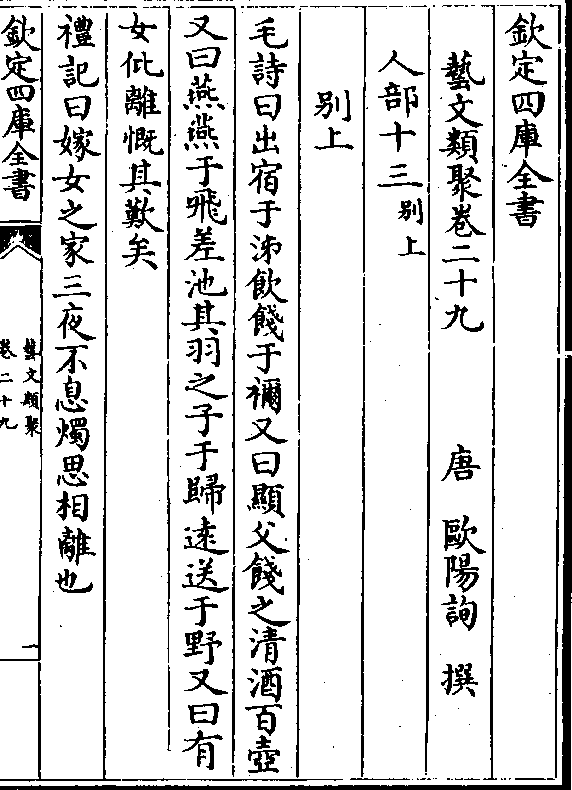 欽定四庫全書
藝文類聚卷二十九
唐 歐陽詢 撰
人部十三 别上
别上
毛詩曰出宿于泲飲餞于禰又曰顯父餞之清酒百壺
又曰燕燕于飛差池其羽之子于歸逺送于野又曰有
女仳離慨其歎矣
禮記曰嫁女之家三夜不息燭思相離也
欽定四庫全書
藝文類聚
卷二十九
一